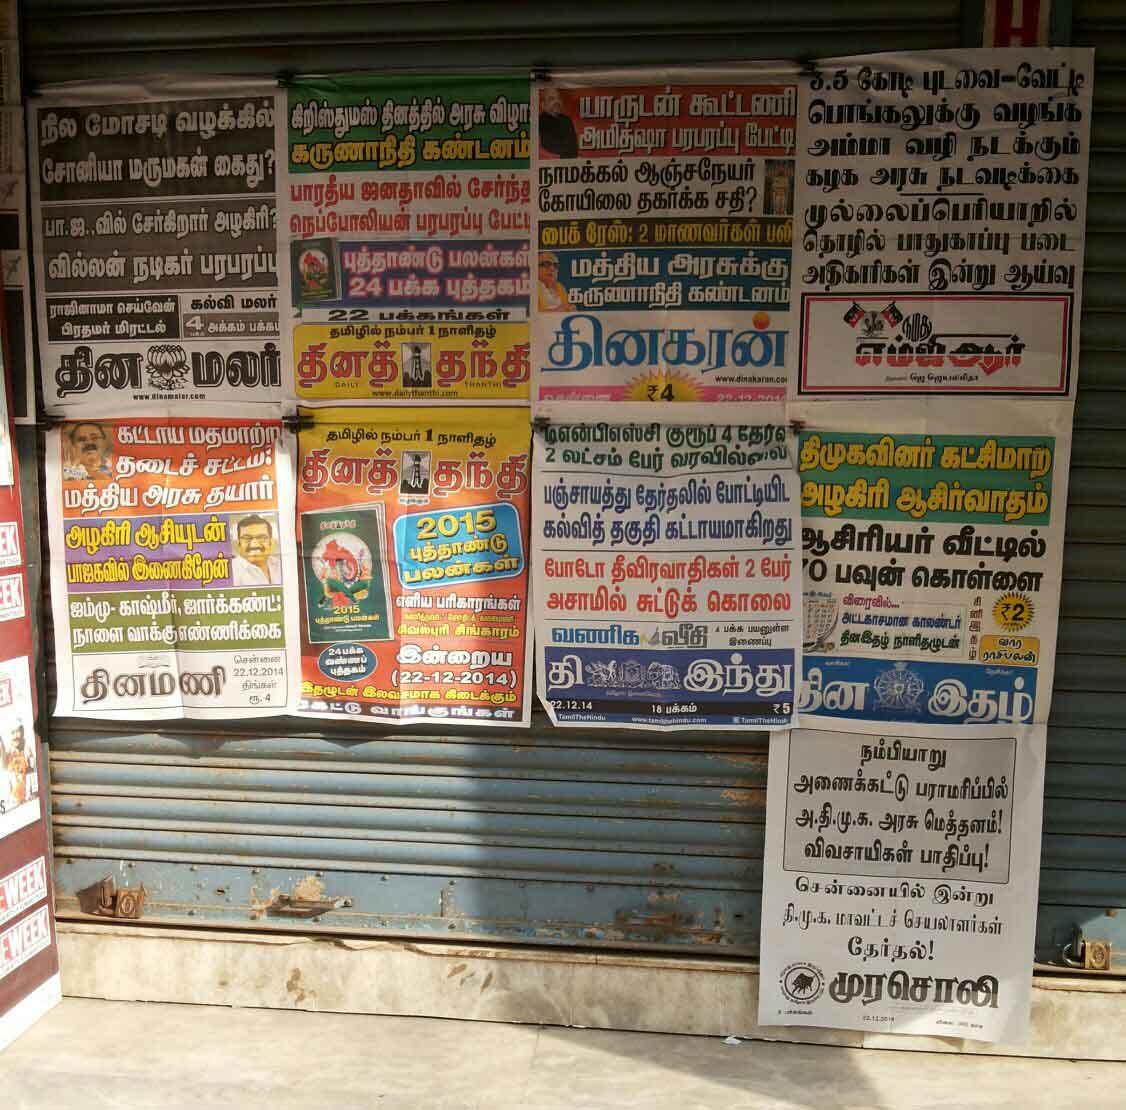 நில மோசடி வழக்கில்
சோனியா மருமகன் கைது?
பா.ஜ.,வில் சேர்கிறார் அழகிரி?
வில்லன் நடிகர் பரபரப்பு
ராஜினாமா செய்வேன்
பிரதமர் மிரட்டல்
கல்வி மலர்
4 பக்க அக்கம் பக்கம்
தின மலர்
www.dinamalar.com
கிறிஸ்துமஸ் தினத்தில் அரசு விழா
கருணாநிதி கண்டனம்
பாரதீய ஜனதாவில் சேர்ந்த
நெப்போலியன் பரபரப்பு பேட்டி
புத்தாண்டு பலன்கள்
24 பக்க புத்தகம்
22 பக்கங்கள்
தமிழில் நம்பர் 1 நாளிதழ்
தினத் தந்தி
DAILY THANTHI
www.dailythanthi.com
யாருடன் கூட்டணி
அமித்ஷா பரபரப்பு பேட்டி
நாமக்கல் ஆஞ்சநேயர்
கோயிலை தகர்க்க சதி?
பைக் ரேஸ்: 2 மாணவர்கள் பலி
மத்திய அரசுக்கு
கருணாநிதி கண்டனம்
தினகரன்
www.dinakaran.co
சென்னை ₹4 22-12-2014
3.5 கோடி புடவை-வேட்டி
பொங்கலுக்கு வழங்க
அம்மா வழி நடக்கும்
கழக அரசு நடவடிக்கை
முல்லைப்பெரியாறில்
தொழில் பாதுகாப்பு படை
அதிகாரிகள் இன்று ஆய்வு
நமது
எம்ஜிஆர்
நிறுவனர் ஜெ ஜெயலலிதா
கட்டாய மதமாற்ற
தடைச் சட்டம்:
மத்திய அரசு தயார்
அழகிரி ஆசியுடன்
பாஜகவில் இணைகிறேன்
ஜம்மு-காஷ்மீர், ஜார்க்கண்ட்:
நாளை வாக்கு எண்ணிக்கை
தினமணி
சென்னை
22.12.2014
திங்கள்
ரூ. 4
தமிழில் நம்பர் 1 நாளிதழ்
தினத் தந்தி
2015
புத்தாண்டு
பலன்கள்
2015
புத்தாண்டு பலன்கள்
எளிய பரிகாரங்கள்
சிவல்புரி சிங்காரம்
24 பக்க
வண்ணப்
புத்தகம்
இன்றைய
(22-12-2014)
இதழுடன் இலவசமாக கிடைக்கும்
கேட்டு வாங்குங்கள்
டிஎன்பிஎஸ்சி குரூப் 4 தேர்வு
2 லட்சம் பேர் வரவில்லை
பஞ்சாயத்து தேர்தலில் போட்டியிட
கல்வித் தகுதி கட்டாயமாகிறது
போடோ தீவிரவாதிகள் 2 பேர்
அசாமில் சுட்டுக் கொலை
வணிக வீதி 4 பக்க பயனுள்ள
இணைப்பு
தி இந்து
22.12.14 18 பக்கம் ₹5
TamilTheHindu www.tamilthehindu.com TamilTheHindu
திமுகவினர் கட்சிமாற
அழகிரி ஆசிர்வாதம்
ஆசிரியர் வீட்டில்
70 பவுன் கொள்ளை
விரைவில்...
அட்டகாசமான காலண்டர்
தினஇதழ் நாளிதழுடன்
₹2
வார
ராசிபலன்
தின இதழ்
நம்பியாறு
அணைக்கட்டு பராமரிப்பில்
அ.தி.மு.க. அரசு மெத்தனம்!
விவசாயிகள் பாதிப்பு!
சென்னையில் இன்று
தி.மு.க. மாவட்டச் செயலாளர்கள்
தேர்தல்!
முரசொலி
22.12.2014
EWEEK
EWEEK